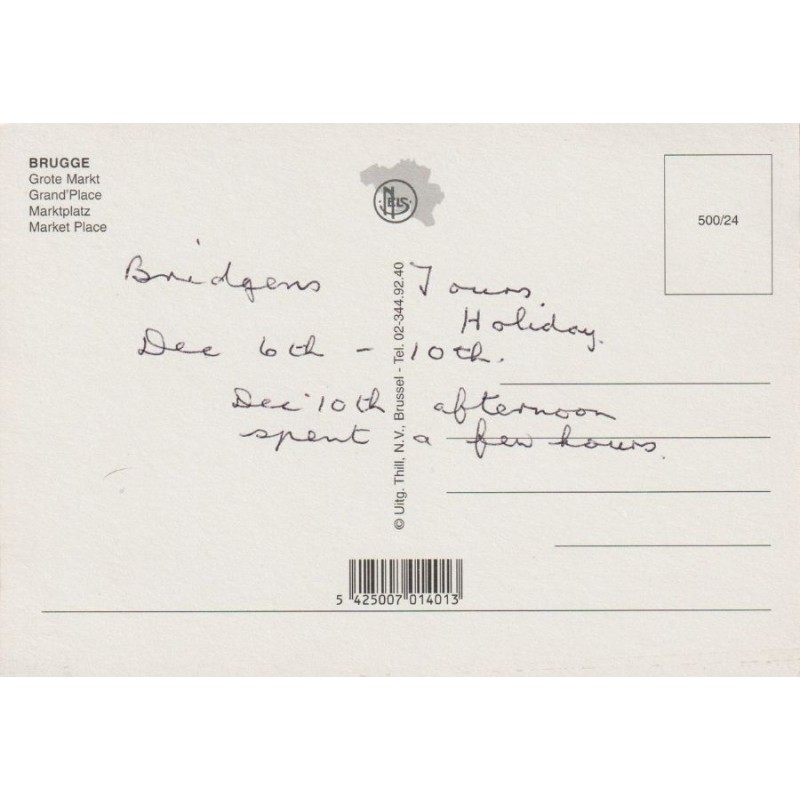 BRUGGE
Grote Markt
Grand'Place
Marktplatz
Market Place
NELS
500/24
Bridgens Tours.
Holiday.
Dec 6th - 10th.
Dec 10th afternoon
spent a few hours.
© Uitg. Thill, N.V., Brussel - Tel. 02-344.92.40
5 425007 014013